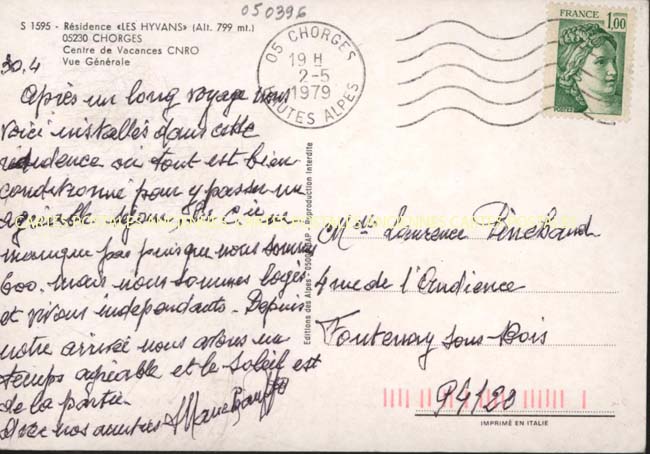 050396
S 1595 - Résidence «LES HYVANS» (Alt. 799 mt.)
05230 CHORGES
Centre de Vacances CNRO
Vue Générale
30.4
Après un long voyage nous
voici installés dans cette
résidence où tout est bien
conditionné pour y passer un
agréable séjour
manque pas puisque nous sommes
600. mais nous sommes logés
et vivons indépendants. Depuis
notre arrivée nous avons un
temps agréable et le soleil est
de la partie.
Avec nos amitiés
05 CHORGES
19 H
2-5
1979
HAUTES ALPES
FRANCE
1,00
POSTES
Editions des Alpes - 05000 GAP - Reproduction Interdite
Melle Laurence Pinchaud
4 rue de l'Audience
Fontenay sous-Bois
94120
IMPRIMÉ EN ITALIE